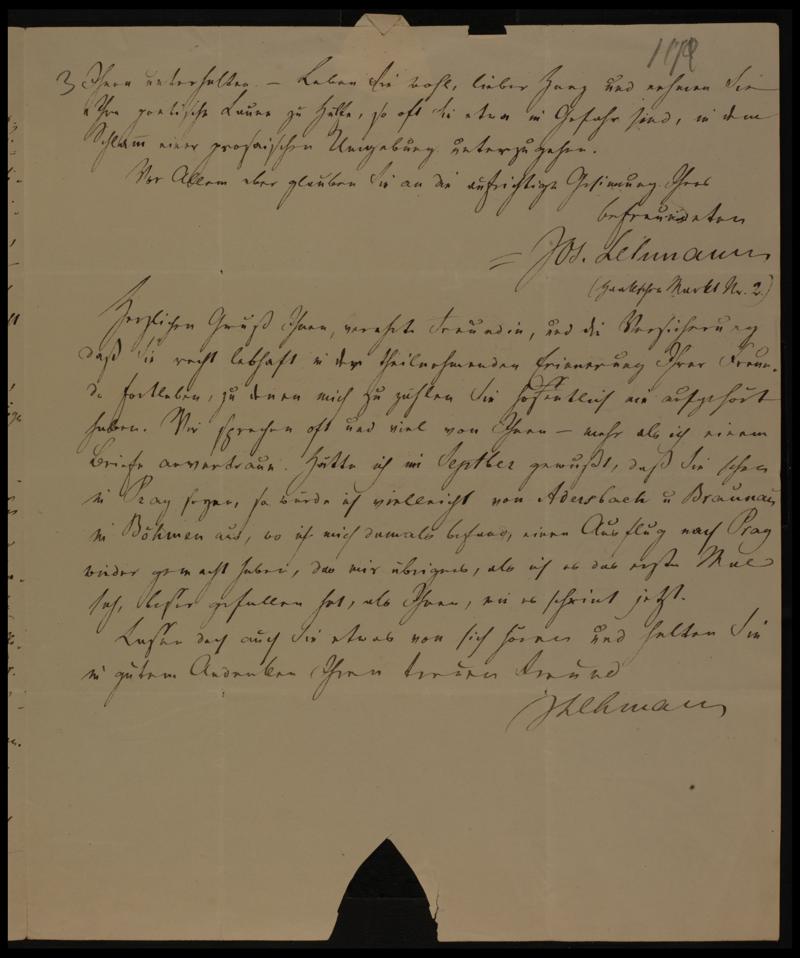 1172
3 Ihnen unterhalten. — Leben Sie wohl, lieber Haug und nehmen Sie
Ihre poetische Laune zu Hülfe, so oft Sie etwa in Gefahr sind, in dem
Schlam̅ einer prosaischen Umgebung unterzugehen.
Vor Allem aber glauben Sie an die aufrichtige Gesinnung Ihres
befreundeten
= Jos. Lehmann
(Haakschen Markt Nr. 2.)
Herzlichen Gruß Ihnen, verehrte Freundin, und die Versicherung
daß Sie recht lebhaft in der theilnehmenden Erinnerung Ihrer Freun-
de fortleben, zu denen mich zu zählen Sie hoffentlich nie aufgehört
haben. Wir sprechen oft und viel von Ihnen — mehr als ich einem
Briefe anvertraue. Hätte ich im Septber gewußt, daß Sie schon
in Prag seyen, so würde ich vielleicht von Adersbach u Braunau
in Böhmen aus, wo ich mich damals befand, einen Ausflug nach Prag
wieder gemacht haben, das mir übrigens, als ich es das erste Mal
sah, besser gefallen hat, als Ihnen, wie es scheint jetzt.
Lassen doch auch Sie etwas von sich hören und halten Sie
in gutem Andenken Ihren treuen Freund
JLehmann